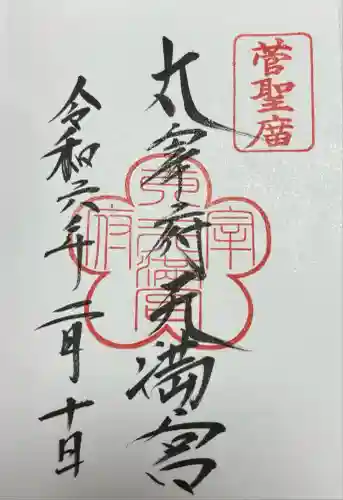 菅聖廟
大宰府天満宮
令和六年二月十日